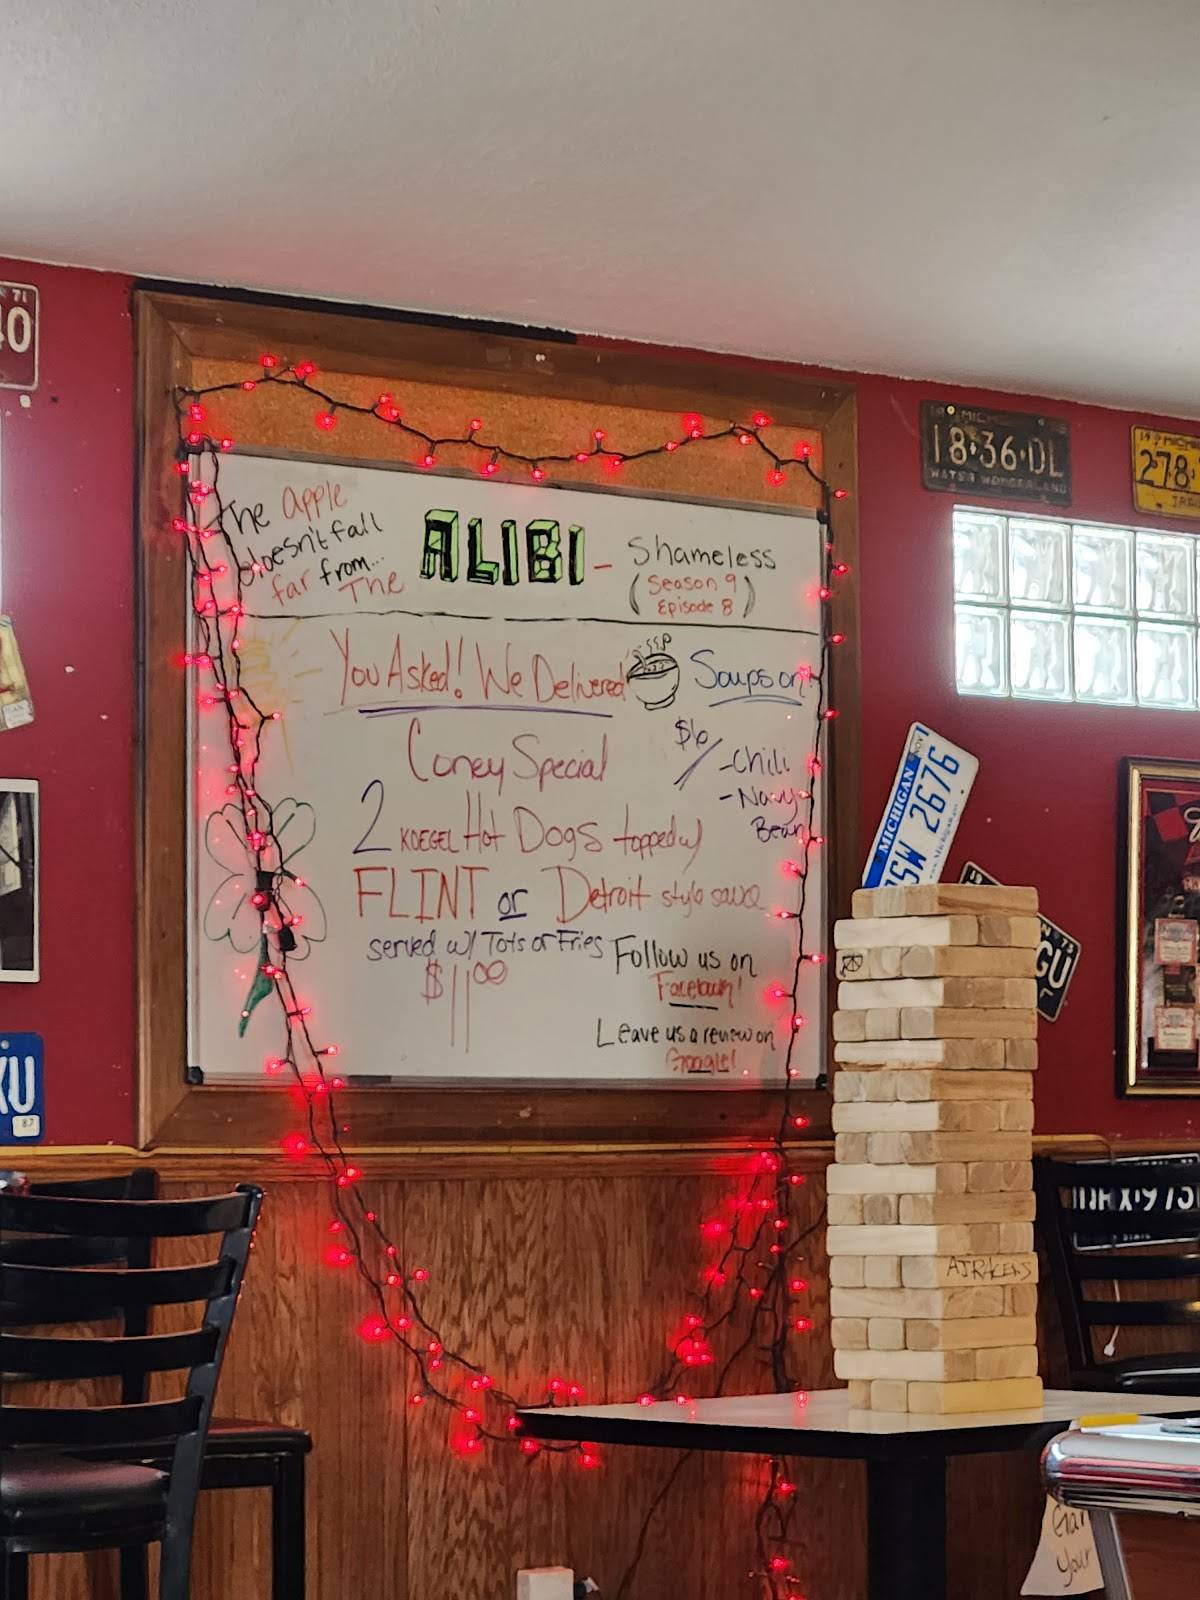 The apple
doesn't fall
far from...
The
ALIBI - Shameless
(Season 9
Episode 8)
You Asked! We Delivered
Soups on!
$6/ -Chili
-Navy
Bean
Coney Special
2 KOEGEL Hot Dogs topped w/
FLINT or Detroit style sauce
served w/ Tots or Fries
$11.00
Follow us on
Facebook!
Leave us a review on
Google!
71
40
MICH
18·36·DL
WATER WONDERLAND
19 MICH
278
MICHIGAN NOV
SW 2676
N 73
GU
KU
87
AJRACENS
X·9731
STATE
Your